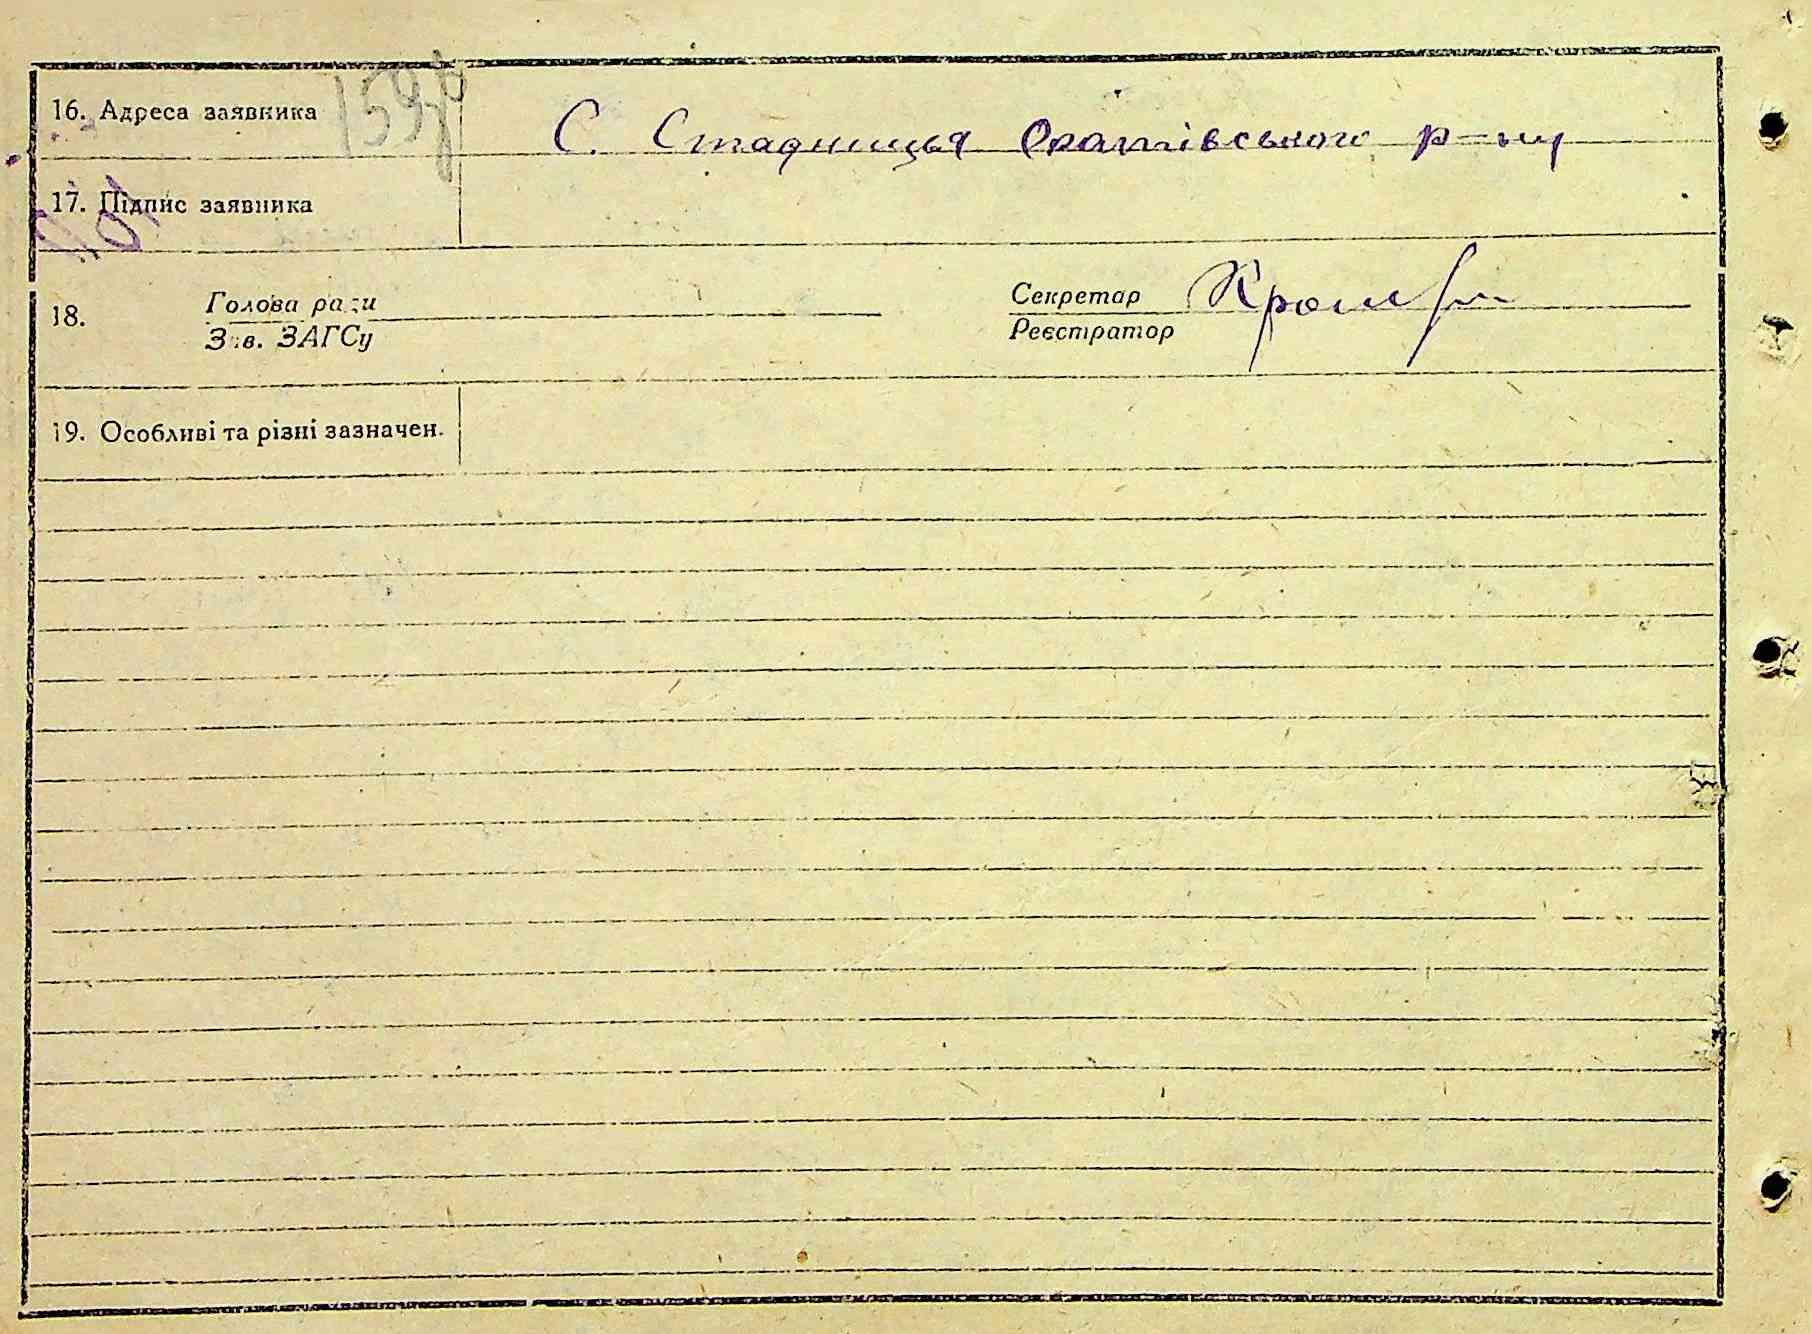 16. Адреса заявника
С. Стадниця Оратівського р-ну
17. Підпис заявника
18. Голова ради Секретар
Зав. ЗАГСу Реєстратор
19. Особливі та різні зазначен.